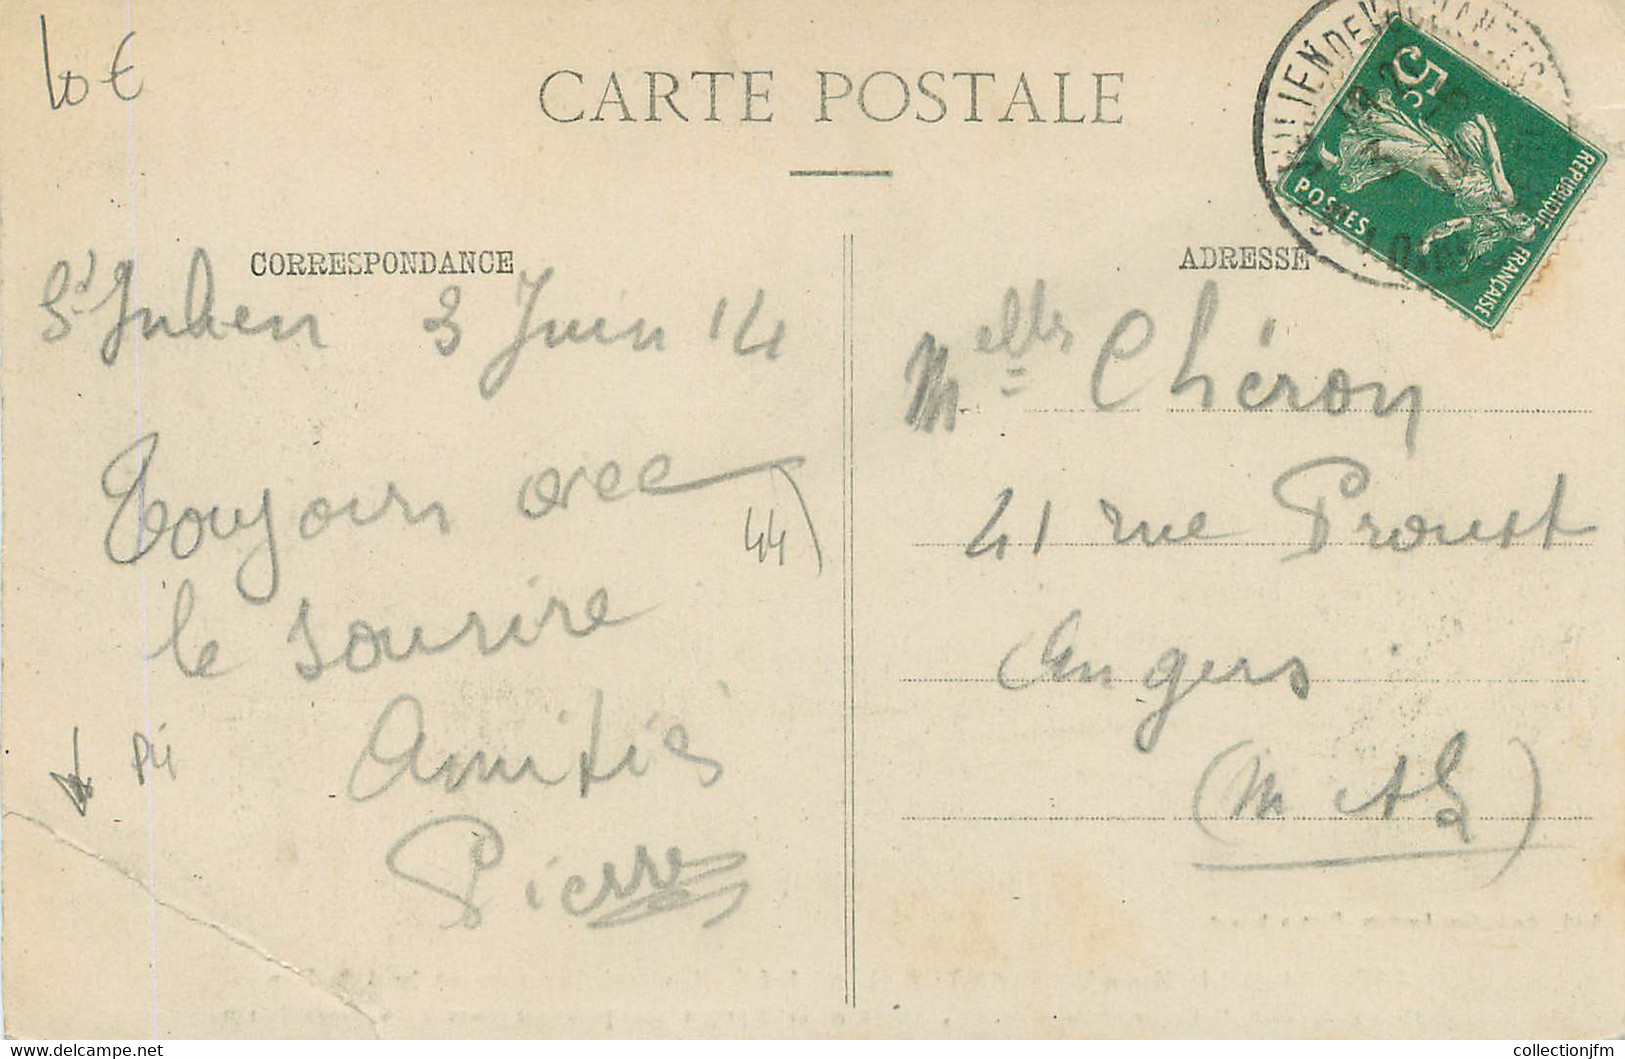 10 €
CARTE POSTALE
5c.
POSTES
REPUBLIQUE FRANÇAISE
CORRESPONDANCE
ADRESSE
St Julien 3 Juin 14
Toujours avec
le sourire
Amitiés
Pierre
44
Melles Chéron
41 rue Proust
Angers
(M et L)
www.delcampe.net
collectionjfm